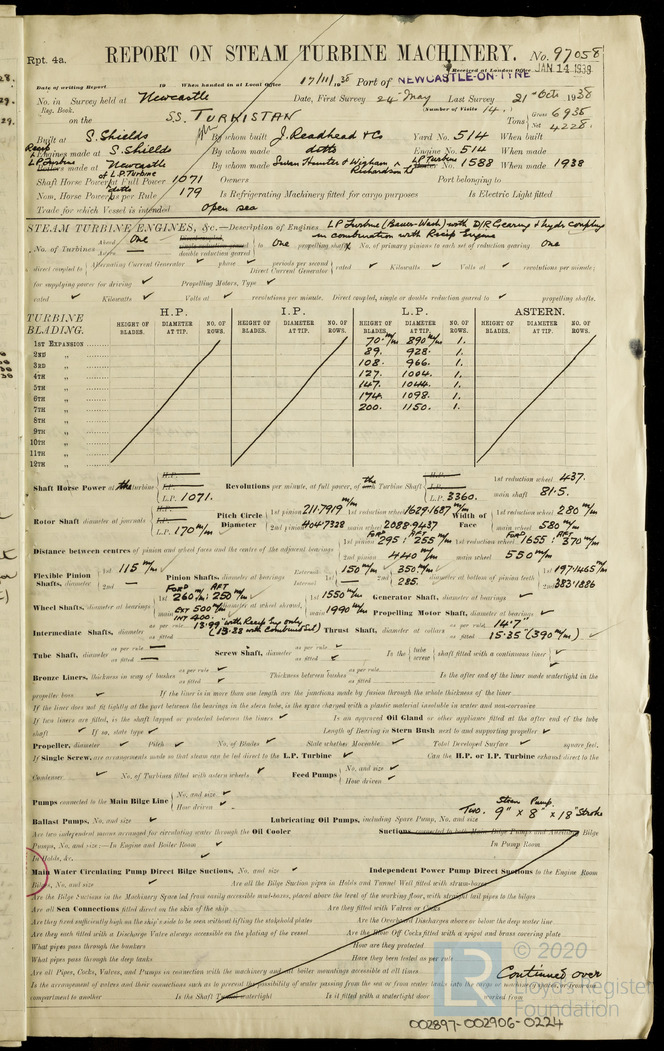 Rpt. 4a.
REPORT ON STEAM TURBINE MACHINERY. No. 97058
Received at London Office JAN 14 1939
Date of writing Report 19 When handed in at Local Office 17/11/1938 Port of NEWCASTLE-ON-TYNE
No. in Survey held at Newcastle Date, First Survey 24 May Last Survey 21 Oct 1938
Reg. Book. (Number of Visits 14.)
on the S.S. TURKISTAN Tons Gross 6935 Net 4228.
Built at S. Shields By whom built J. Readhead & Co Yard No. 514 When built
Recip Engines made at S. Shields By whom made ditto Engine No. 514 When made
LP Turbine made at Newcastle By whom made Swan Hunter & Wigham Richardson Ltd LP Turbine No. 1588 When made 1938
Shaft Horse Power at Full Power of L.P. Turbine 1071 Owners Port belonging to
Nom. Horse Power as per Rule ditto 179 Is Refrigerating Machinery fitted for cargo purposes Is Electric Light fitted
Trade for which Vessel is intended Open sea
STEAM TURBINE ENGINES, &c.—Description of Engines LP Turbine (Bauer-Wach) with D/R Gearing & hydr coupling
in combination with Recip Engine
No. of Turbines Ahead One Astern — double reduction geared to One propelling shaft No. of primary pinions to each set of reduction gearing One
direct coupled to Alternating Current Generator phase periods per second Direct Current Generator rated Kilowatts Volts at revolutions per minute;
for supplying power for driving Propelling Motors, Type
rated Kilowatts Volts at revolutions per minute. Direct coupled, single or double reduction geared to propelling shafts.
TURBINE BLADING. H.P. I.P. L.P. ASTERN.
HEIGHT OF BLADES. DIAMETER AT TIP. NO. OF ROWS. HEIGHT OF BLADES. DIAMETER AT TIP. NO. OF ROWS. HEIGHT OF BLADES. DIAMETER AT TIP. NO. OF ROWS. HEIGHT OF BLADES. DIAMETER AT TIP. NO. OF ROWS.
1ST EXPANSION 70 m/m 890 m/m 1.
2ND „ 89. 928. 1.
3RD „ 108. 966. 1.
4TH „ 127. 1004. 1.
5TH „ 147. 1044. 1.
6TH „ 174. 1098. 1.
7TH „ 200. 1150. 1.
8TH „
9TH „
10TH „
11TH „
12TH „
Shaft Horse Power at the turbine H.P. I.P. L.P. 1071. Revolutions per minute, at full power, of the Turbine Shaft H.P. L.P. 3360. 1st reduction wheel 437. main shaft 81.5.
Rotor Shaft diameter at journals H.P. L.P. 170 m/m Pitch Circle Diameter 1st pinion 211.7919 m/m 2nd pinion 404.7328 1st reduction wheel 1629.1687 m/m main wheel 2088.9437 Width of Face 1st reduction wheel 280 m/m main wheel 580 m/m
Distance between centres of pinion and wheel faces and the centre of the adjacent bearings 1st pinion FORD 295 AFT 255 m/m 2nd pinion 440 m/m 1st reduction wheel FORD 1655 AFT 370 m/m main wheel 550 m/m
Flexible Pinion Shafts, diameter 1st 115 m/m 2nd — Pinion Shafts, diameter at bearings External 150 m/m 350 m/m Internal — 285. diameter at bottom of pinion teeth 1st 197.1465 m/m 2nd 383.1886
Wheel Shafts, diameter at bearings 1st FORD 260 m/m AFT 250 m/m main EXT 500 m/m INT 400. diameter at wheel shroud, 1st 1550 m/m main 1990 m/m Generator Shaft, diameter at bearings Propelling Motor Shaft, diameter at bearings
Intermediate Shafts, diameter as per rule 13.99" with Recip Eng only (13.28 with Combined Set) as fitted Thrust Shaft, diameter at collars as per rule, 14.7" as fitted 15.35 (390 m/m)
Tube Shaft, diameter as per rule — as fitted — Screw Shaft, diameter as per rule as fitted Is the tube screw shaft fitted with a continuous liner
Bronze Liners, thickness in way of bushes as per rule as fitted Thickness between bushes as per rule as fitted Is the after end of the liner made watertight in the
propeller boss If the liner is in more than one length are the junctions made by fusion through the whole thickness of the liner
If the liner does not fit tightly at the part between the bearings in the stern tube, is the space charged with a plastic material insoluble in water and non-corrosive
If two liners are fitted, is the shaft lapped or protected between the liners Is an approved Oil Gland or other appliance fitted at the after end of the tube
shaft If so, state type Length of Bearing in Stern Bush next to and supporting propeller
Propeller, diameter Pitch No. of Blades State whether Moveable Total Developed Surface square feet.
If Single Screw, are arrangements made so that steam can be led direct to the L.P. Turbine Can the H.P. or I.P. Turbine exhaust direct to the
Condenser No. of Turbines fitted with astern wheels Feed Pumps No. and size How driven
Pumps connected to the Main Bilge Line No. and size How driven
Ballast Pumps, No. and size Lubricating Oil Pumps, including Spare Pump, No. and size Two. Steam Pump. 9" x 8" x 18" Stroke
Are two independent means arranged for circulating water through the Oil Cooler Suctions, connected to both Main Bilge Pumps and Auxiliary Bilge
Pumps, No. and size:—In Engine and Boiler Room In Pump Room
In Holds, &c.
Main Water Circulating Pump Direct Bilge Suctions, No. and size Independent Power Pump Direct Suctions to the Engine Room
Bilges, No. and size Are all the Bilge Suction pipes in Holds and Tunnel Well fitted with strum-boxes
Are the Bilge Suctions in the Machinery Space led from easily accessible mud-boxes, placed above the level of the working floor, with straight tail pipes to the bilges
Are all Sea Connections fitted direct on the skin of the ship Are they fitted with Valves or Cocks
Are they fixed sufficiently high on the ship's side to be seen without lifting the stokehold plates Are the Overboard Discharges above or below the deep water line
Are they each fitted with a Discharge Valve always accessible on the plating of the vessel Are the Blow Off Cocks fitted with a spigot and brass covering plate
What pipes pass through the bunkers How are they protected
What pipes pass through the deep tanks Have they been tested as per rule
Are all Pipes, Cocks, Valves, and Pumps in connection with the machinery and all boiler mountings accessible at all times
Continued over
compartment to another Is the Shaft Tunnel watertight Is it fitted with a watertight door worked from
© 2020
LR Lloyd's Register Foundation
002897-002906-0224